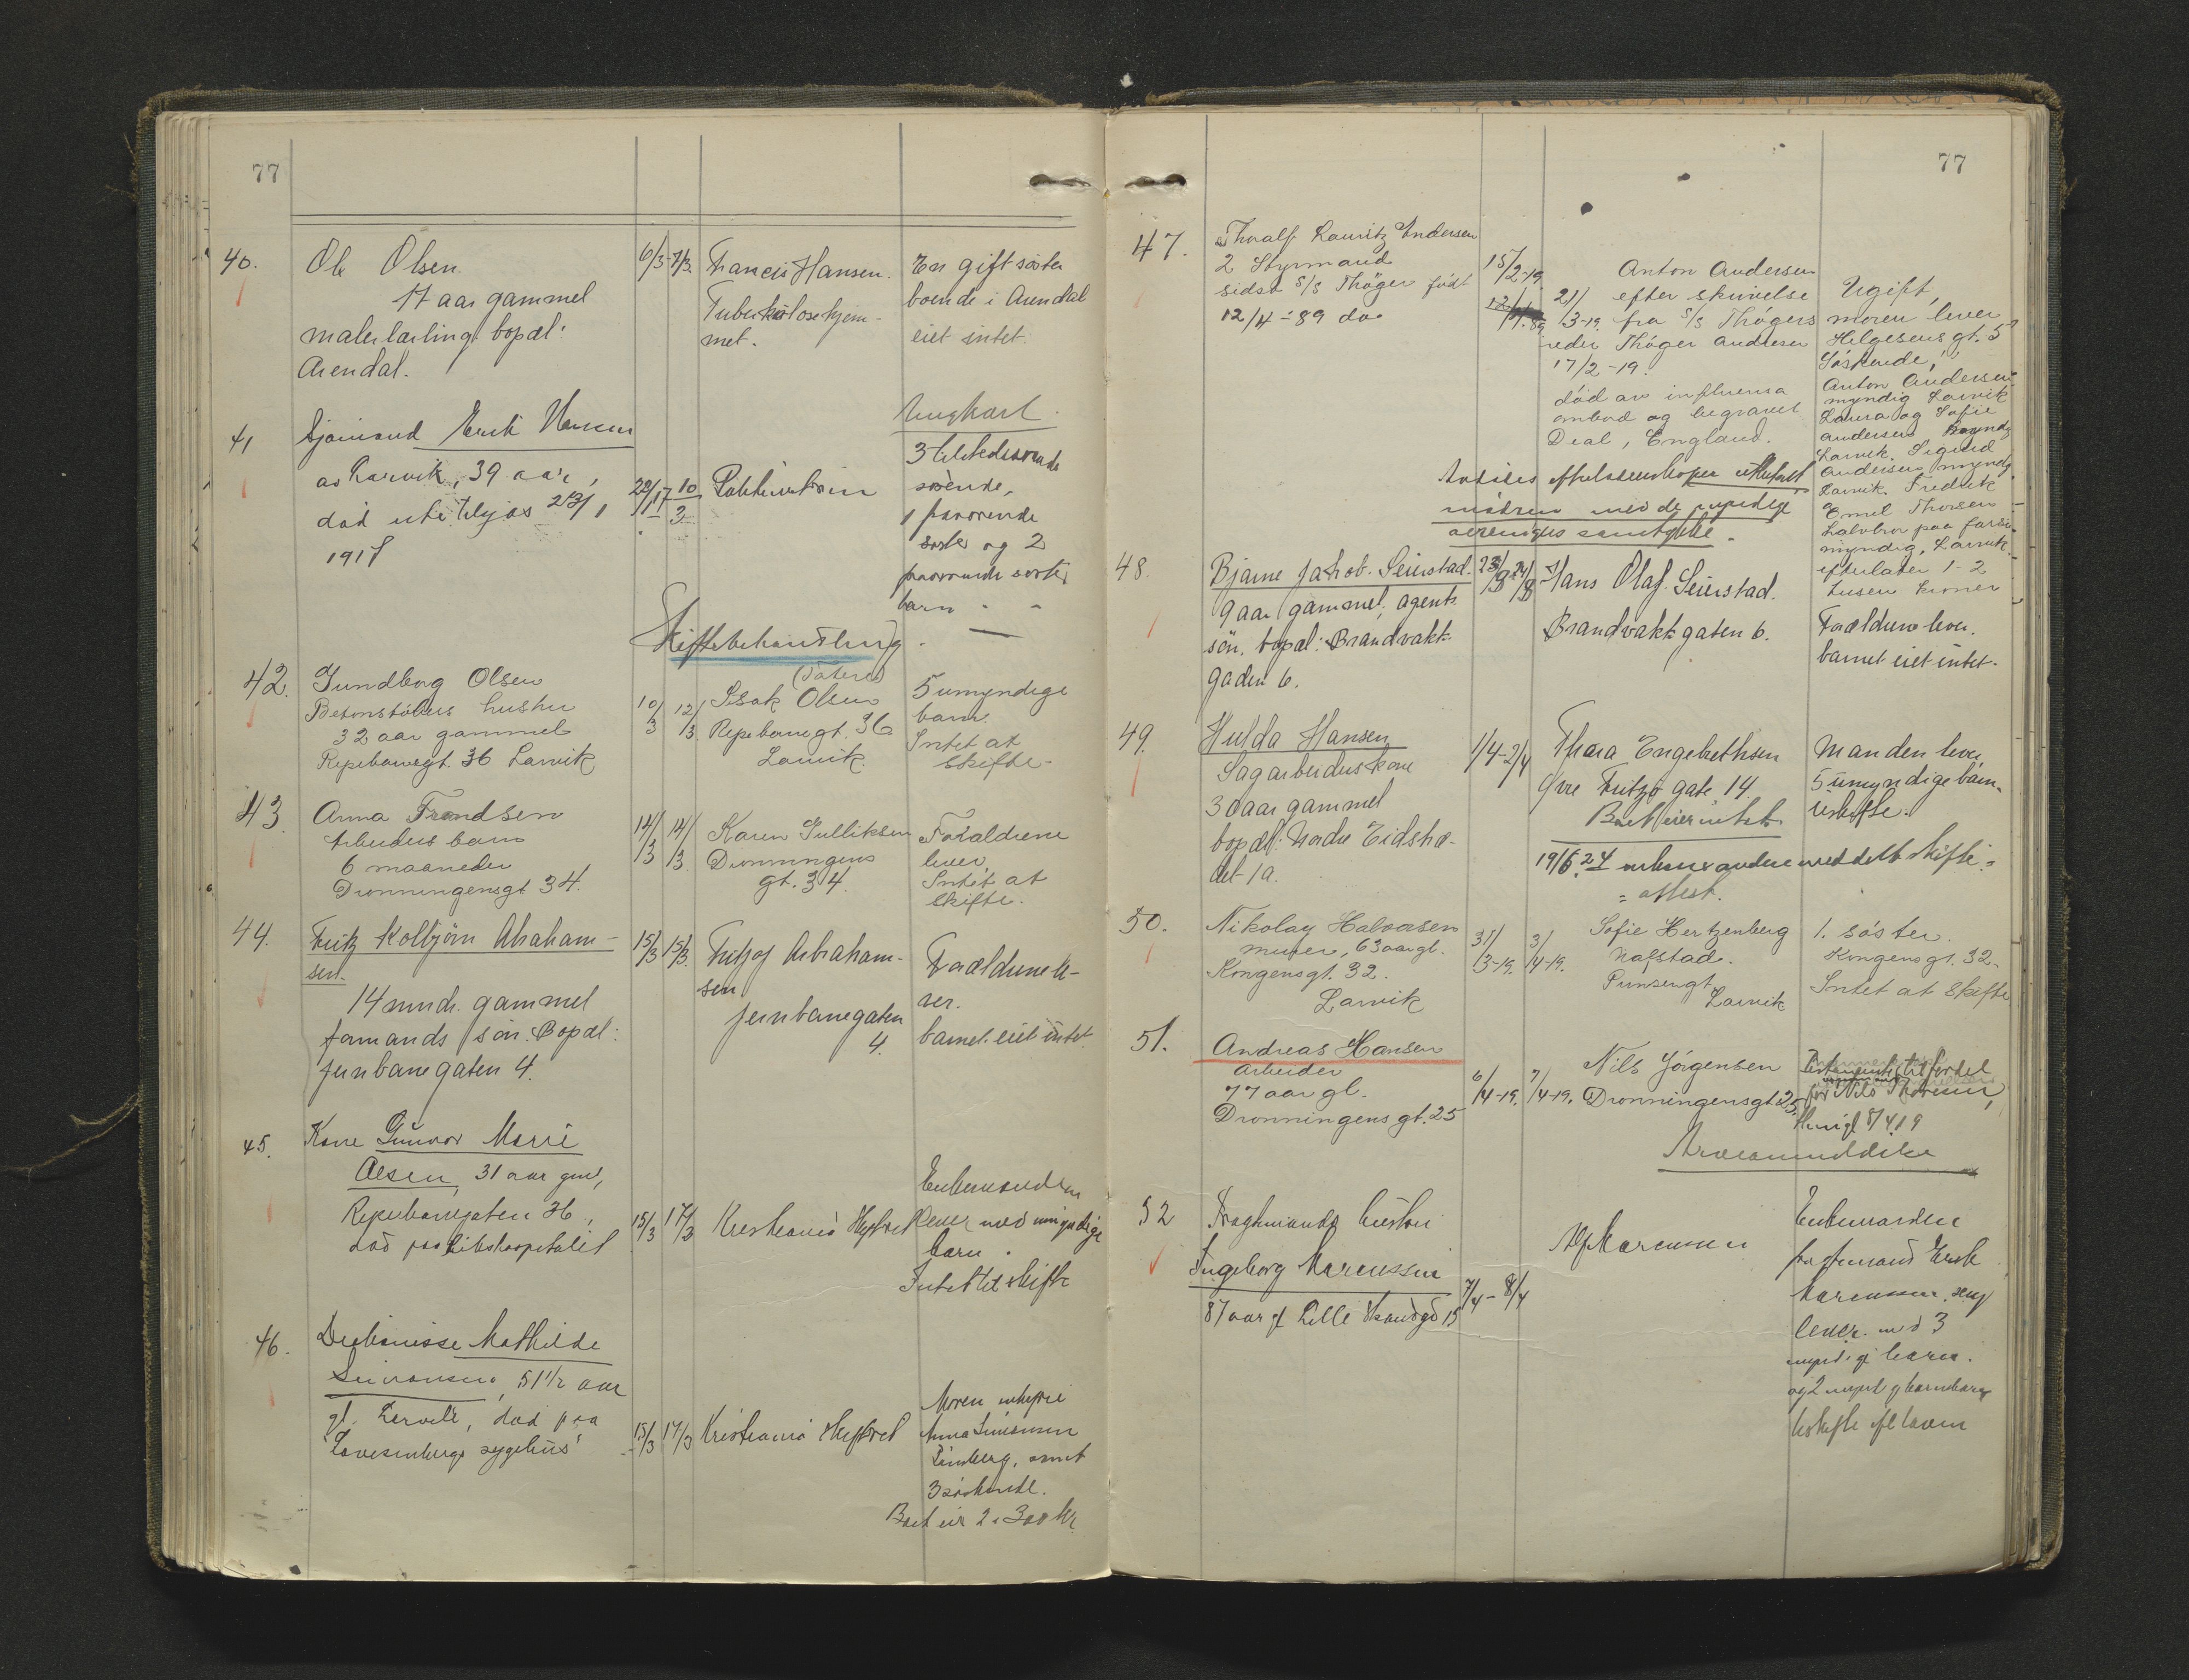 77
40. Ole Olsen
17 aar gammel
malerlærling. bopæl:
Arendal.
6/3 7/3
Francis Hansen.
Tuberkulosehjem-
met.
En gift søster
boende i Arendal
eiet intet.
41 Sjømand Erik Hansen
av Larvik, 39 aar,
død ute
1917
Ungkarl.
3 tilstedeværende
søskende,
1 fraværende
søster og 2
fraværende søsters
barn
Skiftebehandling.
42. Gundborg Olsen
Betonstøbers hustru
32 aar gammel
Repebanegt. 36 Larvik
10/3 12/3
Isak Olsen
Repebanegt. 36
Larvik.
5 umyndige
barn.
Intet at
skifte.
43. Anna Frandsen
Arbeiders barn
6 maaneder
Dronningensgt 34.
14/3 14/3
Karen Gulliksen
Dronningens
gt. 34.
Forældrene
lever.
Intet at
skifte.
44. Fritz Kolbjørn Abraham-
sen.
14 mndr. gammel
formands søn. Bopæl:
Jernbanegaten 4.
15/3 15/3
Fritzof Abraham-
sen
Jernbanegaten
4.
Forældrene le-
ver.
barnet eiet intet.
45. Kone Gunvor Marie
Olsen, 31 aar gml,
Repebanegaten 36,
død paa
15/3 17/3
Kristiania Skifteret
Enkemanden
lever med umyndige
barn.
Intet til skifte
46. Diakonisse Mathilde
51 1/2 aar
gl. Larvik, død paa
Lovisenbergs sygehus
15/3 17/3
Kristiania Skifteret
Moren
Anna
Tønsberg, samt
3 søskende.
Boet eier 2 a 300 kr
77
47. Thoralf Lauritz Andersen
2 Styrmand
sidst S/S Thöger født
12/4-89 do.
15/2-19.
21/3-19.
Anton Andersen
efter skrivelse
fra S/S Thögers
reder Thöger Andersen
17/2-19.
død av influensa
ombord og begravet
Deal, England.
Ugift,
moren lever
Helgesens gt. 5
Søskende,
Anton Andersen
myndig Larvik
Laura og Sofie
Andersen myndig
Larvik. Sigurd
Andersen myndig
Larvik. Fredrik
Emel Thorsen
halvbror paa farsside
myndig, Larvik.
efterlater 1-2
tusen kroner
48. Bjarne Jakob Seierstad.
9 aar gammel, agents
søn. bopæl: Brandvakt-
gaden 6.
Hans Olaf Seierstad.
Brandvaktgaten 6.
Forældrene lever.
barnet eiet intet.
49. Hulda Hansen
Sagarbeiderskone
30 aar gammel
bopæl: Nedre Eidstræ-
det 1a.
1/4-2/4
Thora Engebrethsen
Øvre Fritzø gate 14.
Boet eier intet.
Manden lever,
5 umyndige barn.
Uskifte.
19/6.24 enkemanden meddelt skifte-
attest.
50. Nikolay Halvorsen
murer, 63 aar gl.
Kongensgt. 32.
Larvik
31/3-19. 3/4-19.
Sofie Hertzenberg
Nafstad.
Prinsengt.
Larvik
1. søster.
Kongensgt. 32.
Intet at skifte
51. Andreas Hansen
arbeider
77 aar gl.
Dronningens gt. 25
6/4-19. 7/4-19.
Nils Jørgensen
Dronningensgt. 25.
til fordel
for Nils
52 Fragtmands hustru
Ingeborg Marcussen
87 aar gl Lille Strandgd 15
7/4-8/4
Alf Marcussen
Enkemanden
fragtmand Erik
Marcussen, selv
lever. med 3
myndige barn.
og 2 myndige barnebarn
Uskifte efter loven